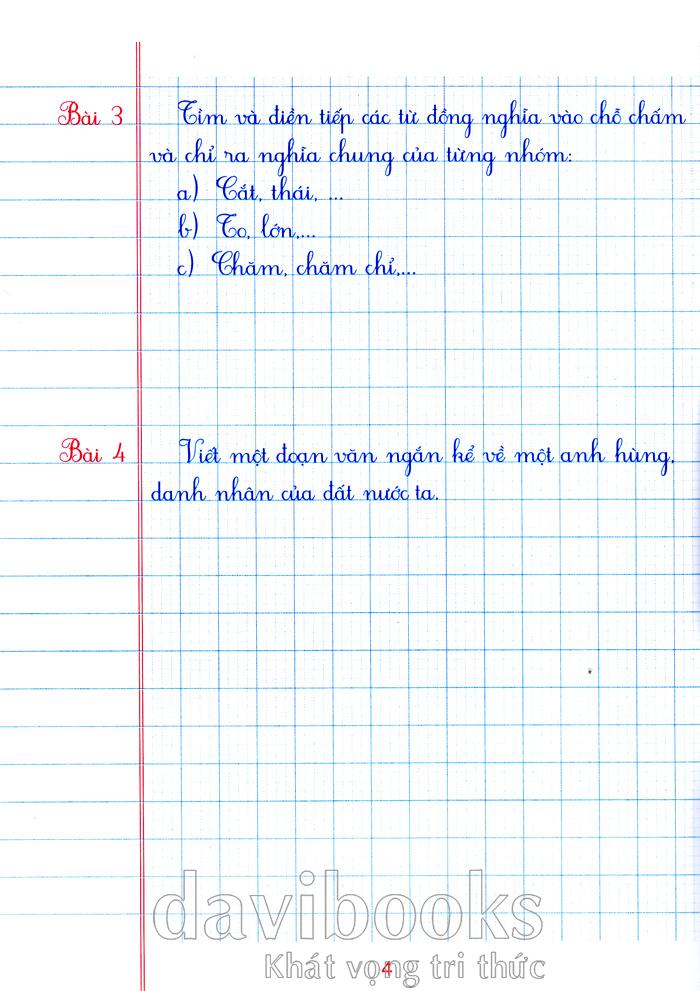 Bài 3 Tìm và điền tiếp các từ đồng nghĩa vào chỗ chấm
và chỉ ra nghĩa chung của từng nhóm:
a) Cắt, thái, ...
b) To, lớn,...
c) Chăm, chăm chỉ,...
Bài 4 Viết một đoạn văn ngắn kể về một anh hùng,
danh nhân của đất nước ta.
davibooks
Khát vọng tri thức
4